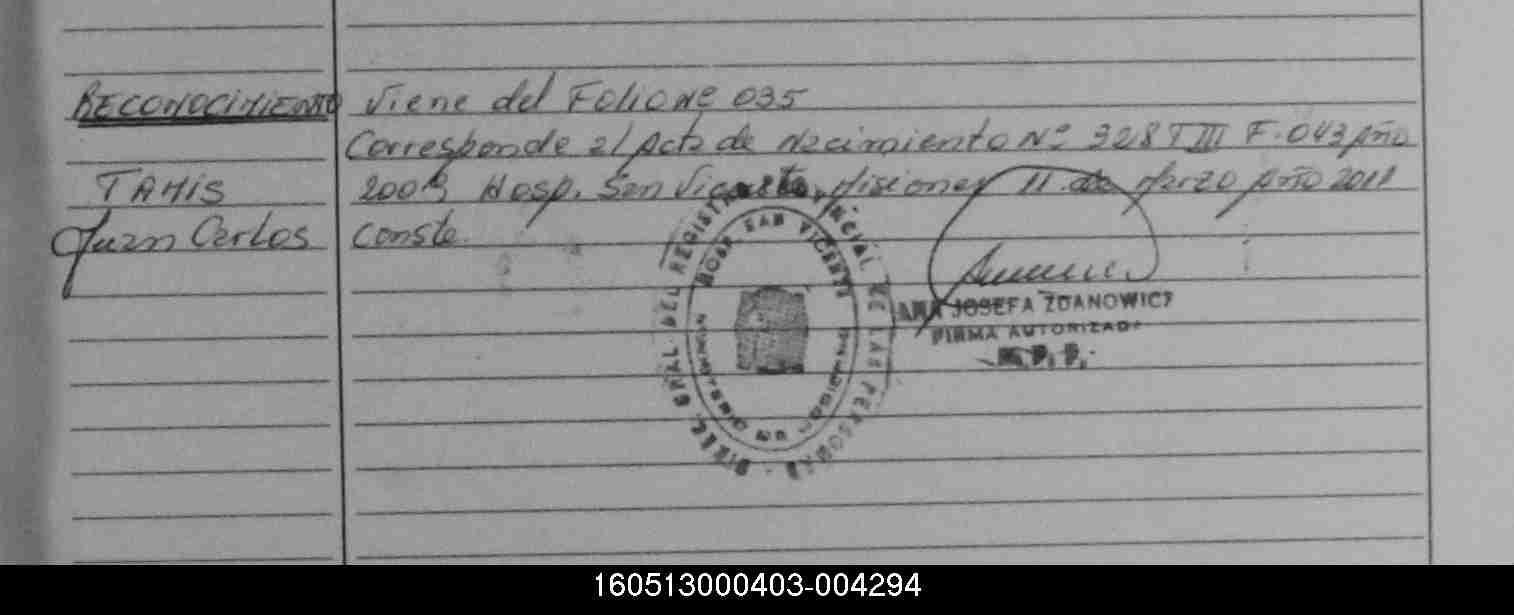 RECONOCIMIENTO Viene del Folio Nº 035
Corresponde al Acta de Nacimiento Nº 328 T III F. 043 Año
TAMIS 2009 Hosp. San Vicente, Misiones 11 de Marzo Año 2011
Juan Carlos Conste.
DIREC. GRAL. DEL REGISTRO PROVINCIAL DE LAS PERSONAS
HOSP. SAN VICENTE
ANA JOSEFA ZDANOWICZ
FIRMA AUTORIZADA
R. P. P.
160513000403-004294